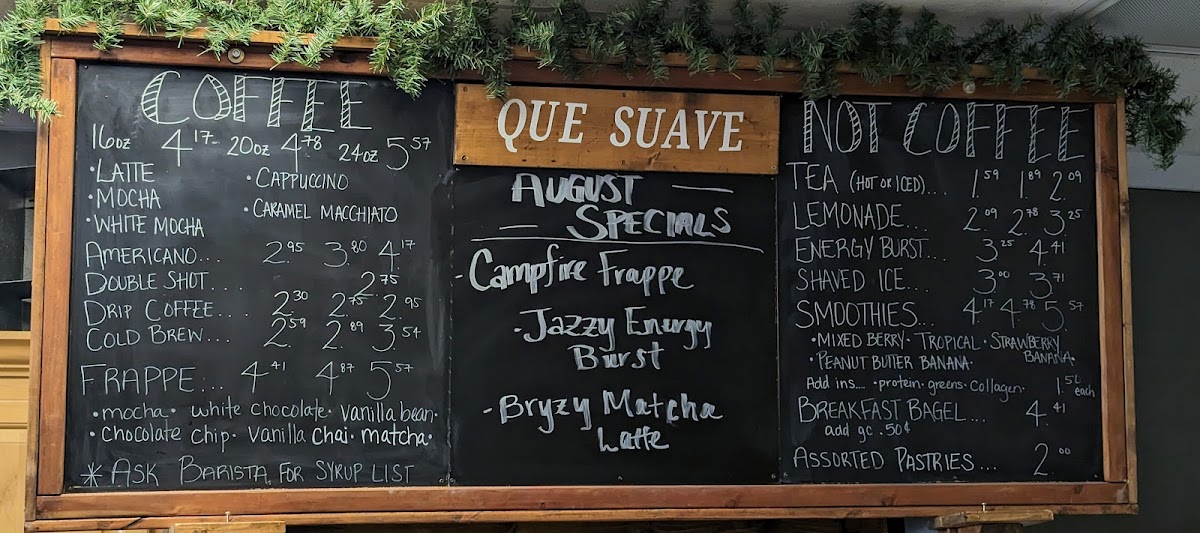 COFFEE
16oz 4.17 20oz 4.78 24oz 5.57
• LATTE • CAPPUCCINO
• MOCHA • CARAMEL MACCHIATO
• WHITE MOCHA
AMERICANO... 2.95 3.80 4.17
DOUBLE SHOT.... 2.75
DRIP COFFEE.... 2.30 2.75 2.95
COLD BREW.... 2.59 2.89 3.54
FRAPPE... 4.41 4.87 5.57
• mocha • white chocolate • vanilla bean •
• chocolate chip • vanilla chai • matcha •
* ASK BARISTA FOR SYRUP LIST
QUE SUAVE
AUGUST —
— SPECIALS
- Campfire Frappe
- Jazzy Energy
Burst
- Bryzy Matcha
Latte
NOT COFFEE
TEA (HOT OR ICED)... 1.59 1.89 2.09
LEMONADE.... 2.09 2.78 3.25
ENERGY BURST.. 3.25 4.41
SHAVED ICE.... 3.00 3.71
SMOOTHIES... 4.17 4.78 5.57
• MIXED BERRY • TROPICAL • STRAWBERRY
BANANA •
• PEANUT BUTTER BANANA •
Add ins.... • protein • greens • collagen • 1.50 each
BREAKFAST BAGEL... 4.41
add gc .50¢
ASSORTED PASTRIES... 2.00